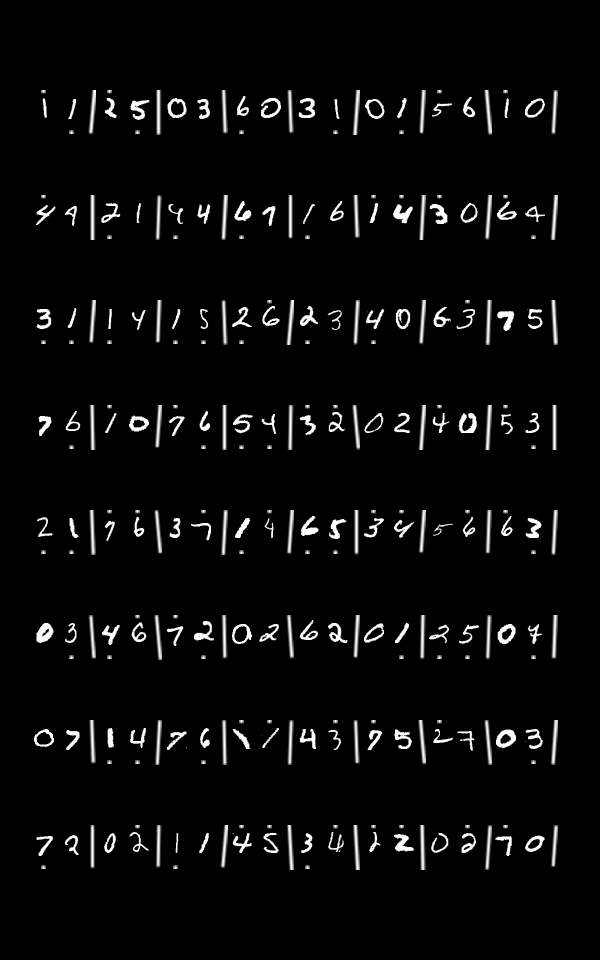 1 1 | 2 5 | 0 3 | 6 0 | 3 1 | 0 1 | 5 6 | 1 0 |
4 4 | 2 1 | 4 4 | 6 7 | 1 6 | 1 4 | 3 0 | 6 4 |
3 1 | 1 4 | 1 5 | 2 6 | 2 3 | 4 0 | 6 3 | 7 5 |
7 6 | 1 0 | 7 6 | 5 4 | 3 2 | 0 2 | 4 0 | 5 3 |
2 1 | 7 6 | 3 7 | 1 4 | 6 5 | 3 4 | 5 6 | 6 3 |
0 3 | 4 6 | 7 2 | 0 2 | 6 2 | 0 1 | 2 5 | 0 7 |
0 7 | 1 4 | 7 6 | 1 1 | 4 3 | 7 5 | 2 7 | 0 3 |
7 2 | 0 2 | 1 1 | 4 5 | 3 4 | 2 2 | 0 2 | 7 0 |